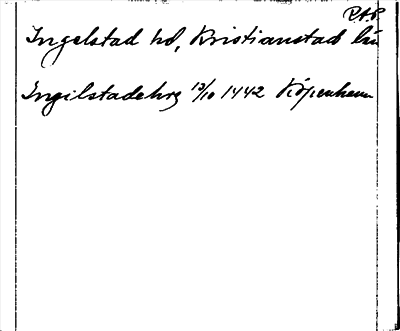 RAP
Ingelstad hd, Kristianstad län
Ingilstadehrg 13/10 1442 Köpenhamn